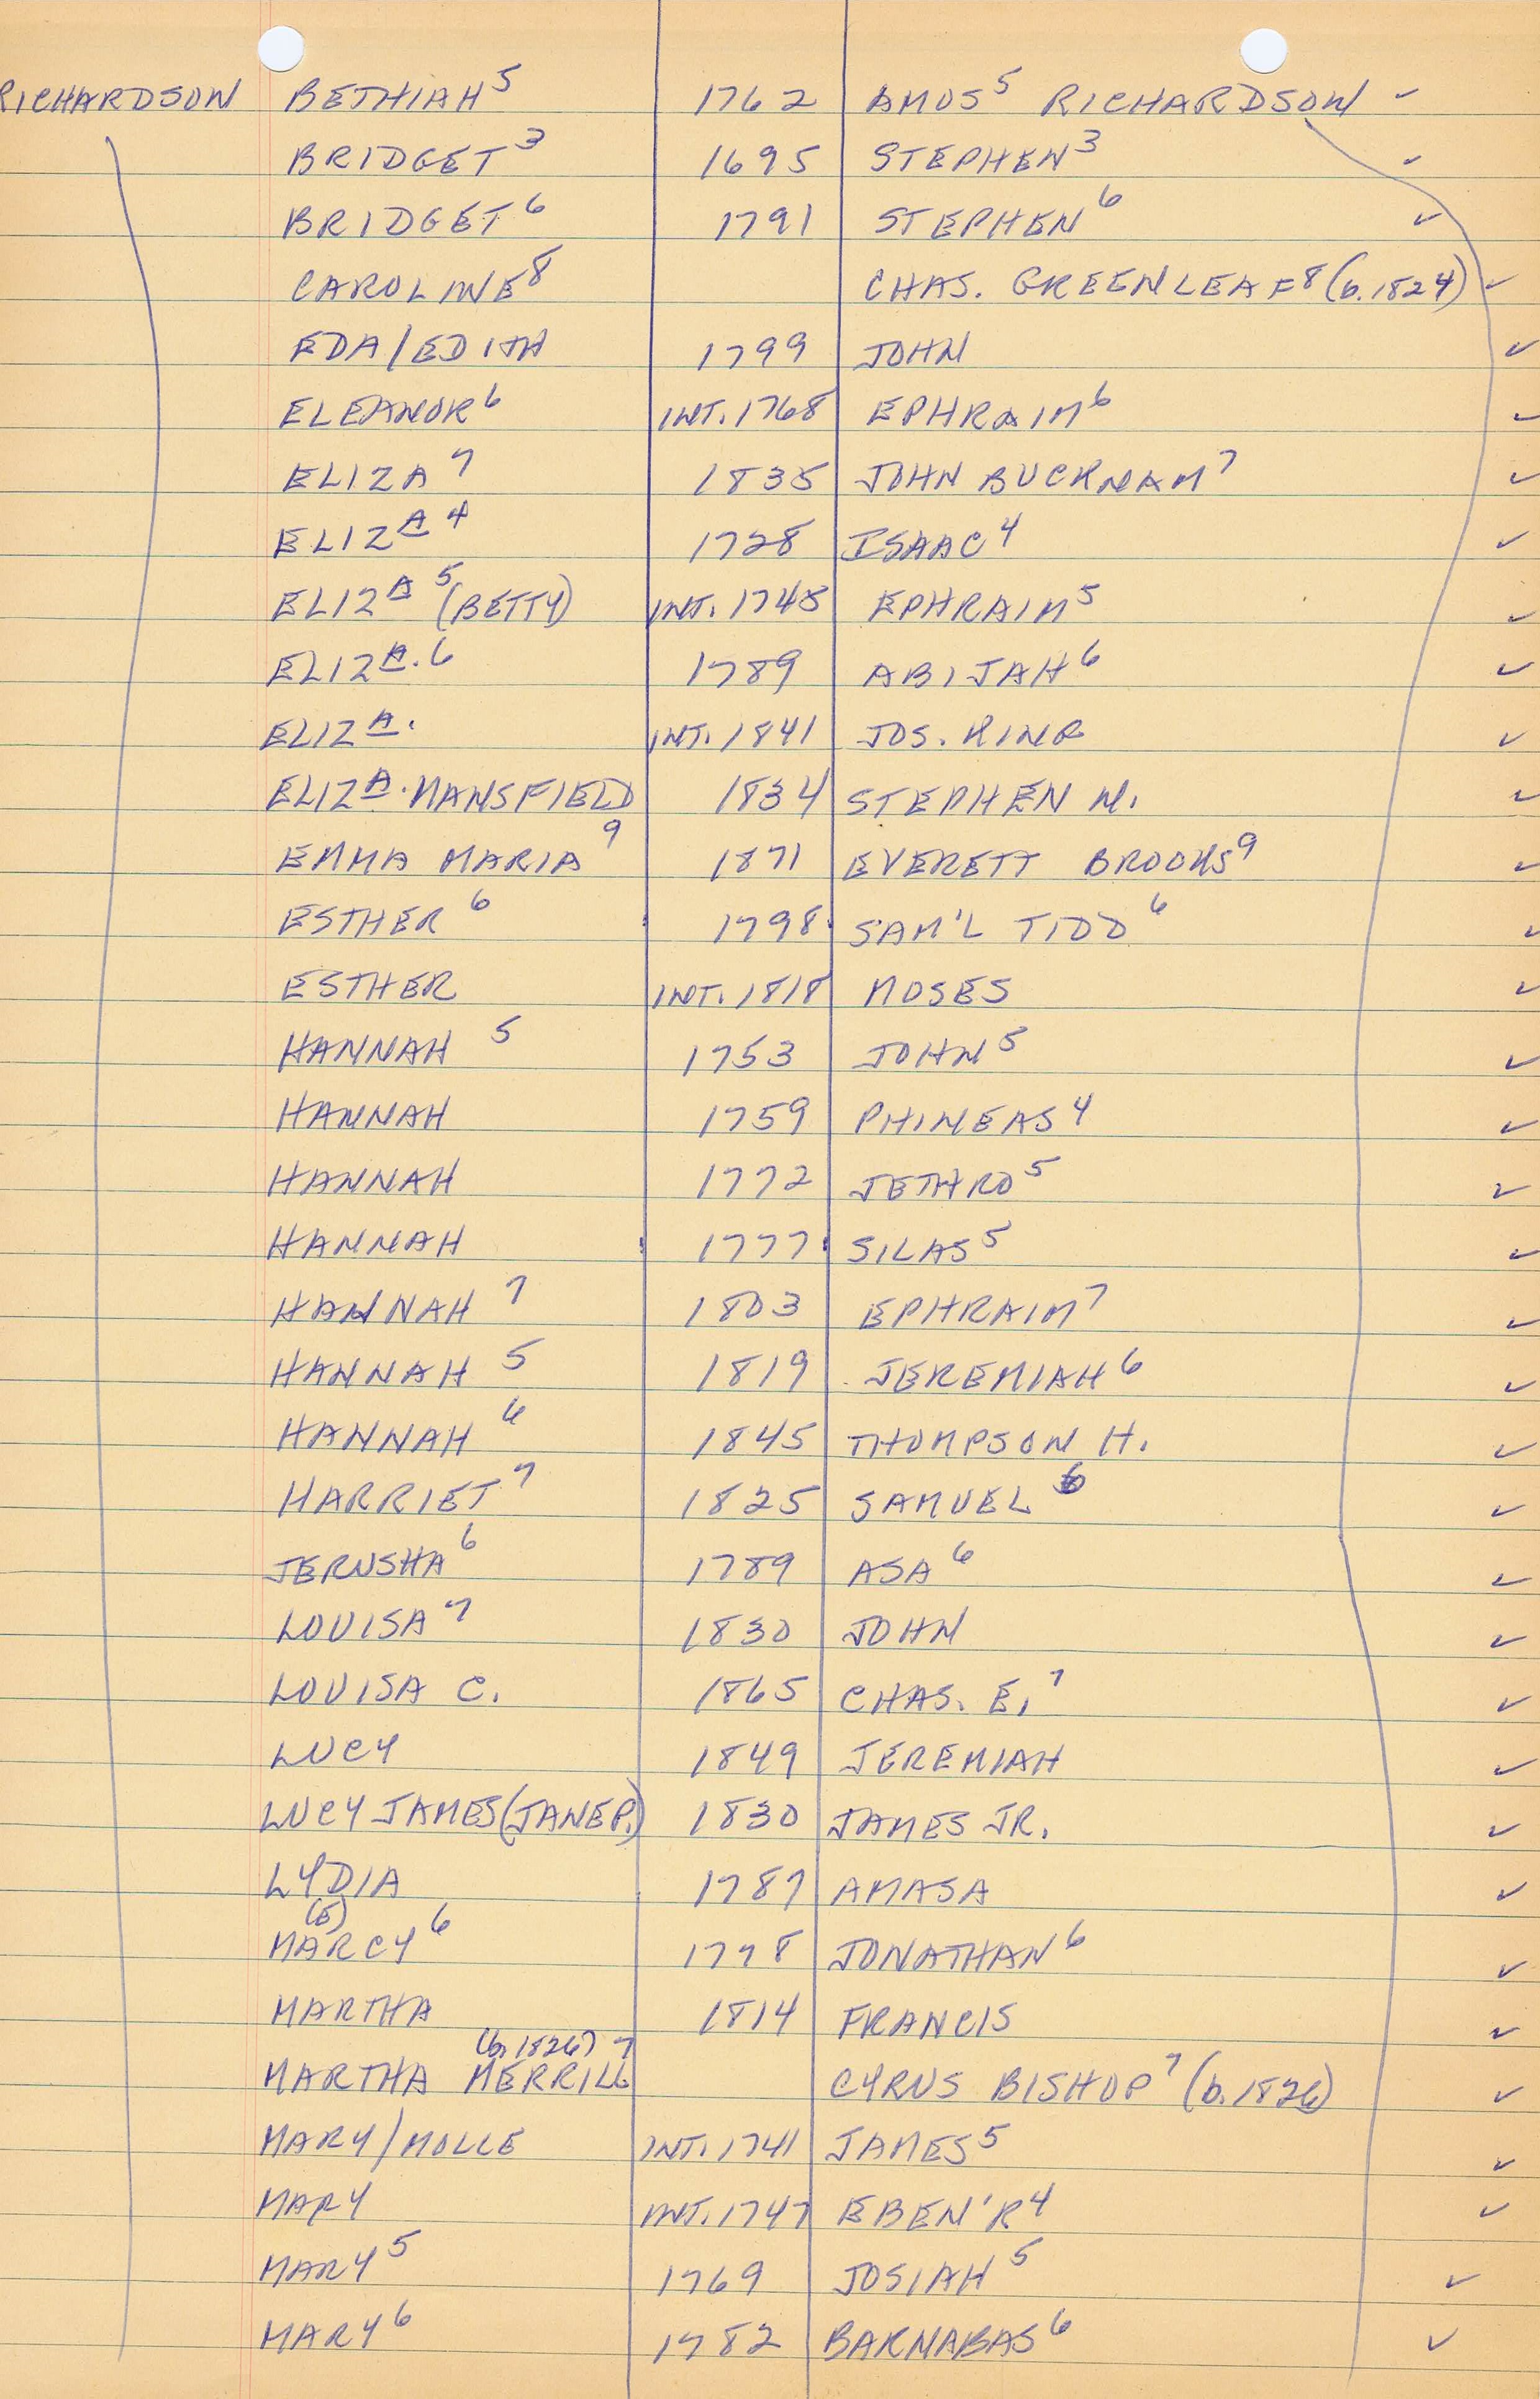 RICHARDSON BETHIAH⁵ 1762 AMOS⁵ RICHARDSON ✓
BRIDGET³ 1695 STEPHEN³ ✓
BRIDGET⁶ 1791 STEPHEN⁶ ✓
CAROLINE⁸ CHAS. GREENLEAF⁸ (b. 1824) ✓
EDA/EDITH 1799 JOHN ✓
ELEANOR⁶ INT. 1768 EPHRAIM⁶ ✓
ELIZA⁷ 1835 JOHN BUCKNAM⁷ ✓
ELIZᴬ⁴ 1728 ISAAC⁴ ✓
ELIZᴬ⁵ (BETTY) INT. 1748 EPHRAIM⁵ ✓
ELIZᴬ.⁶ 1789 ABIJAH⁶ ✓
ELIZᴬ. INT. 1841 JOS. KING ✓
ELIZᴬ. MANSFIELD 1834 STEPHEN N. ✓
EMMA MARIA⁹ 1871 EVERETT BROOKS⁹ ✓
ESTHER⁶ 1798 SAM'L TIDD⁶ ✓
ESTHER INT. 1818 MOSES ✓
HANNAH⁵ 1753 JOHN⁵ ✓
HANNAH 1759 PHINEAS⁴ ✓
HANNAH 1772 JETHRO⁵ ✓
HANNAH 1777 SILAS⁵ ✓
HANNAH⁷ 1803 EPHRAIM⁷ ✓
HANNAH⁵ 1819 JEREMIAH⁶ ✓
HANNAH⁶ 1845 THOMPSON H. ✓
HARRIET⁷ 1825 SAMUEL⁶ ✓
JERUSHA⁶ 1789 ASA⁶ ✓
LOUISA⁷ 1830 JOHN ✓
LOUISA C. 1865 CHAS. E.⁷ ✓
LUCY 1849 JEREMIAH ✓
LUCY JAMES (JANE P.) 1830 JAMES JR. ✓
LYDIA 1787 AMASA ✓
(E)
MARCY⁶ 1778 JONATHAN⁶ ✓
MARTHA 1814 FRANCIS ✓
(b. 1826) 7
MARTHA MERRILL CYRUS BISHOP⁷ (b. 1826) ✓
MARY/MOLLE INT. 1741 JAMES⁵ ✓
MARY INT. 1747 EBEN'R⁴ ✓
MARY⁵ 1769 JOSIAH⁵ ✓
MARY⁶ 1782 BARNABAS⁶ ✓